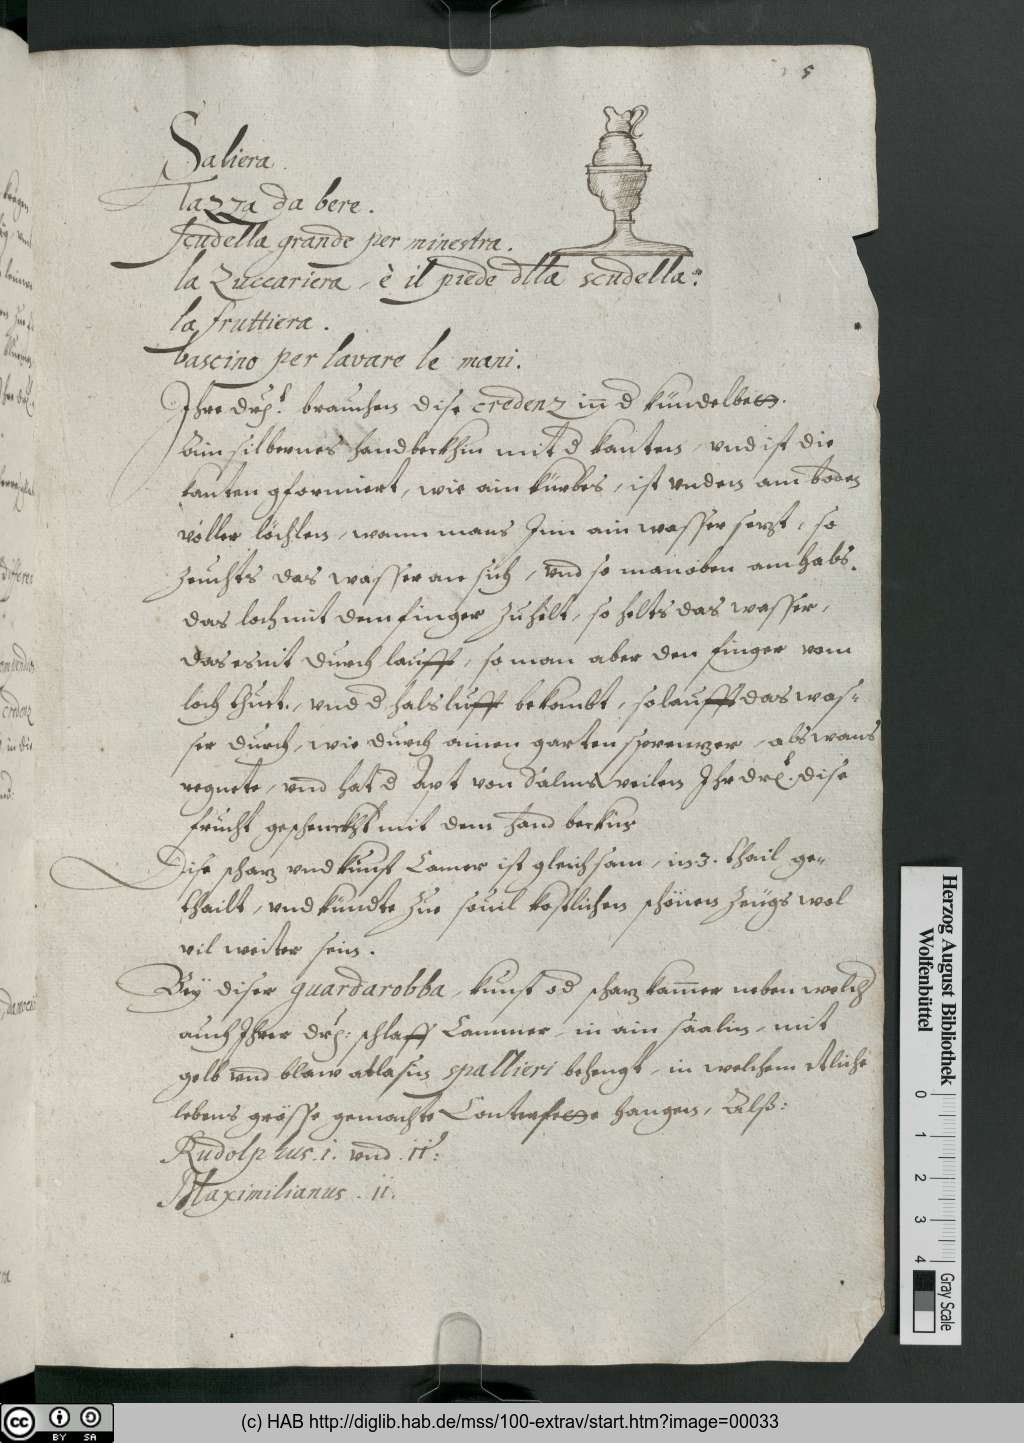 5
Saliera.
Tazza da bere.
Scudella grande per minestra.
la Zuccariera, è il piede dlla scudella:
la fruttiera.
bascino per lavare le mani.
Ihre drl. brauchen dise credenz in d kündelbe
Ain silbernes handbeckhin mit d kanten, vnd ist die
kanten gformiert, wie ain kürbes, ist vnden am boden
voller löchlen, wann mans Inn ain wasser sezt, so
zeuchts das wasser an sich, vnd so man oben am hals
das loch mit dem finger zuhelt, so helts das wasser,
das es nit durch laufft, so man aber den finger vom
loch thuet, vnd d hals lufft bekombt, so laufft das was-
ser durch, wie durch ainen garten sprenzer, als wans
regnete, vnd hat d Apt von Salmsweilen Ihr drl. dise
frucht geschenckht mit dem hand beckin
Dise schaz vnd kunst Camer ist gleichsam, in 3. thail ge-
thailt, vnd kündte zue souil kostlichen schönen zeügs wol
vil weiter sein.
Bey diser guardarobba, kunst od schaz kammer neben welch
auch Ihrer drl: schlaff Cammer, in ain säalin, mit
gelb vnd blaw atlasin spallieri behengt, in welchem etliche
lebens grösse gemachte Conterfe hangen, Alß:
Rudolphus .i. vnd .ii:
Maximilianus .ii.
Herzog August Bibliothek
Wolfenbüttel
0 1 2 3 4
Gray Scale
cc BY SA
(c) HAB http://diglib.hab.de/mss/100-extrav/start.htm?image=00033